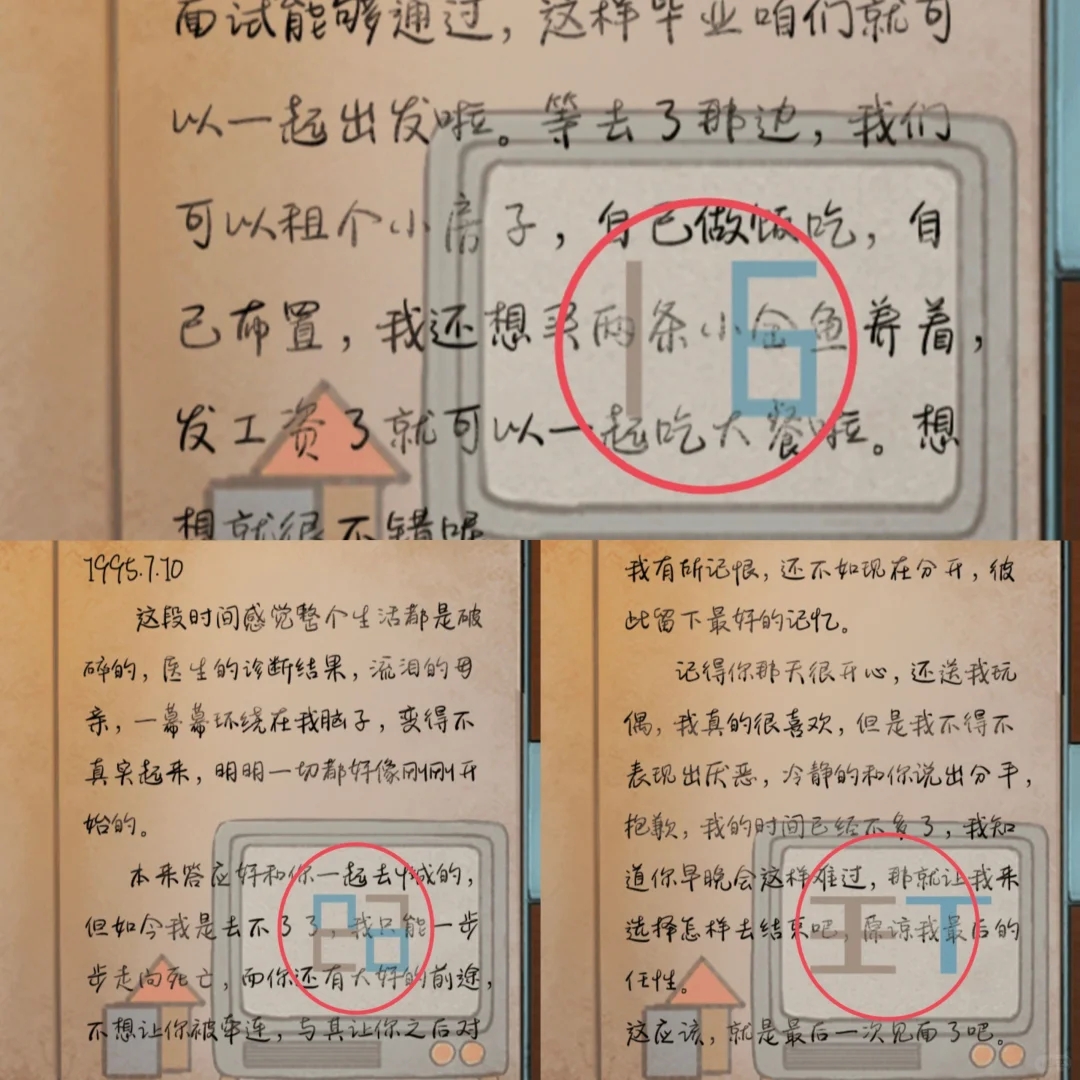 面试能够通过，这样毕业咱们就可
以一起出发啦。等去了那边，我们
可以租个小房子，自己做饭吃，自
己布置，我还想买两条小金鱼养着，
发工资了就可以一起吃大餐啦。想
想就很不错呢
16
1995.7.10
这段时间感觉整个生活都是破
碎的，医生的诊断结果，流泪的母
亲，一幕幕环绕在我脑子，变得不
真实起来，明明一切都好像刚刚开
始的。
本来答应好和你一起去城的，
但如今我是去不了了，我只能一步
步走向死亡，而你还有大好的前途，
不想让你被牵连，与其让你之后对
我有所记恨，还不如现在分开，彼
此留下最好的记忆。
记得你那天很开心，还送我玩
偶，我真的很喜欢，但是我不得不
表现出厌恶，冷静的和你说出分手，
抱歉，我的时间已经不多了，我知
道你早晚会这样难过，那就让我来
选择怎样去结束吧，原谅我最后的
任性。
这应该，就是最后一次见面了吧。